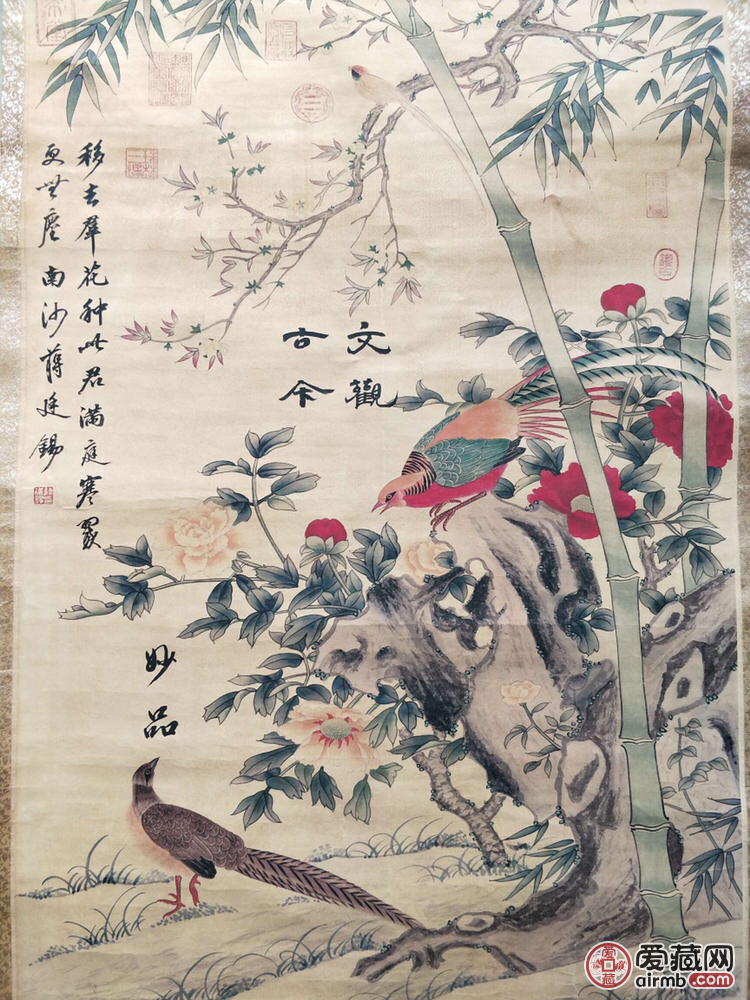 移去羣花种此君滿庭寒翠
更無塵 南沙蔣廷錫
文觀
古今
妙品
爱藏网
airmb.com